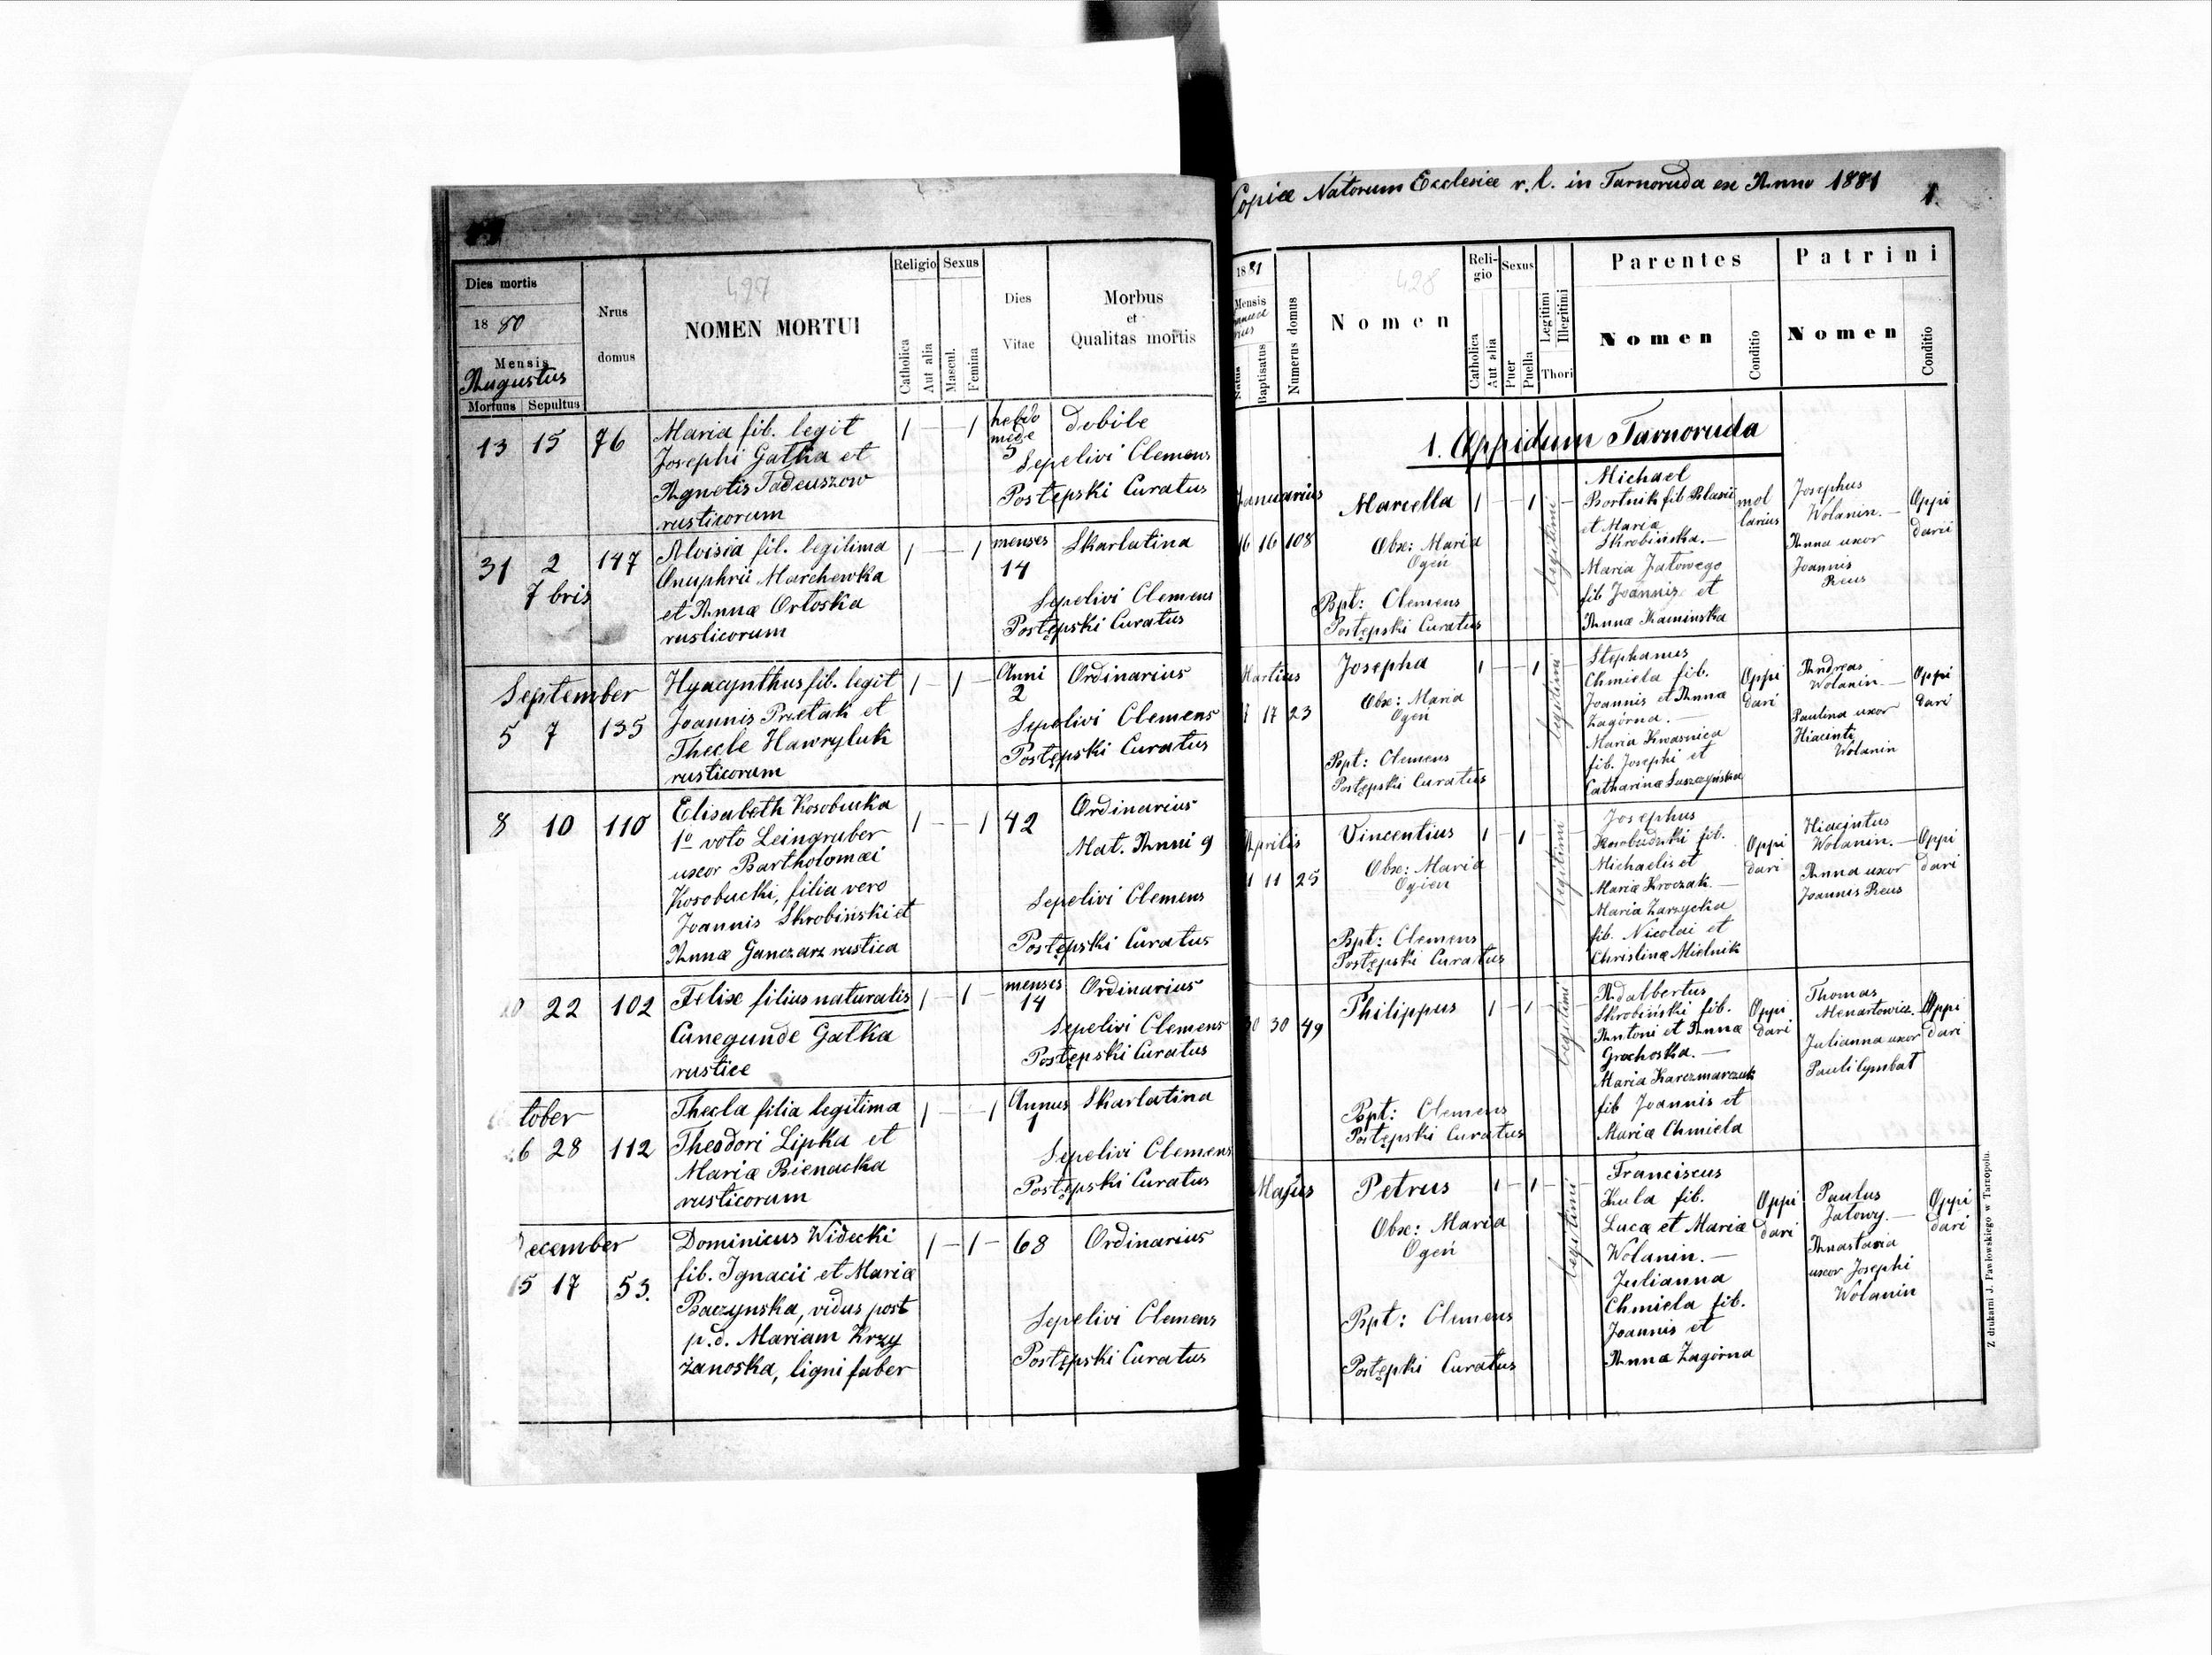 Dies mortis
1880
Mensis
Augustus
Mortuus Sepultus
Nrus
domus
497
NOMEN MORTUI
Religio
Catholica
Aut alia
Sexus
Mascul.
Femina
Dies
Vitae
Morbus
et
Qualitas mortis
13 15 76
Maria fil. legit
Josephi Gatka et
Agnetis Tadeuszow
rusticorum
1 — 1
hebdo
made
5
debile
Sepelivi Clemens
Postępski Curatus
31 2 147
7 bris
Aloisia fil. legitima
Onuphrii Marchewka
et Annæ Ortoska
rusticorum
1 — 1
menses
14
Skarlatina
Sepelivi Clemens
Postępski Curatus
September
5 7 135
Hyacynthus fil. legit
Joannis Prætak et
Theclæ Hawryluk
rusticorum
1 — 1 —
Anni
2
Ordinarius
Sepelivi Clemens
Postępski Curatus
8 10 110
Elisabeth Kosobucka
1º voto Leingruber
uxor Bartholomæi
Kosobucki, filia vero
Joannis Skrobiński et
Annæ Ganczarz rustica
1 — 1
42
Ordinarius
Mat. Anni 9
Sepelivi Clemens
Postępski Curatus
22 102
Felix filius naturalis
Cunegundæ Gatka
rusticæ
1 — 1 —
menses
14
Ordinarius
Sepelivi Clemens
Postępski Curatus
tober
6 28 112
Thecla filia legitima
Theodori Lipka et
Mariæ Bienacka
rusticorum
1 — 1
Annus
1
Skarlatina
Sepelivi Clemens
Postępski Curatus
ecember
5 17 53.
Dominicus Widecki
fil. Ignacii et Mariæ
Baczynska, vidus post
p.d. Mariam Krzy
żanoska, ligni faber
1 — 1 —
68
Ordinarius
Sepelivi Clemens
Postępski Curatus
Copiæ Natorum Ecclesiæ r.l. in Tarnoruda ex Anno 1881
1.
1881
Mensis
Natus
Baptisatus
Numerus domus
428
Nomen
Reli-
gio
Catholica
Aut alia
Sexus
Puer
Puella
Legitimi
Illegitimi
Thori
Parentes
Nomen
Conditio
Patrini
Nomen
Conditio
1. Oppidum Tarnoruda
Januarius
16 16 108
Marcella
Obx: Maria
Ogień
Bpt: Clemens
Postępski Curatus
1 — 1 —
legitimi
Michael
Bortnik fil. Blasii
et Mariæ
Skrobińska. —
Maria Jatowego
fil. Joannis et
Annæ Kaminska
mol
larius
Josephus
Wolanin. —
Anna uxor
Joannis
Reus
Oppi
darii
Martius
17 23
Josepha
Obx: Maria
Ogień
Bpt: Clemens
Postępski Curatus
1 — 1 —
legitimi
Stephanus
Chmiela fil.
Joannis et Annæ
Zagórna. —
Maria Kwasnica
fil. Josephi et
Catharinæ Suszczyńska
Oppi
dari
Andreas
Wolanin —
Paulina uxor
Hiacinti
Wolanin
Oppi
dari
Aprilis
11 25
Vincentius
Obx: Maria
Ogien
Bpt: Clemens
Postępski Curatus
1 — 1 —
legitimi
Josephus
Kosobudzki fil.
Michaelis et
Mariæ Kroczak. —
Maria Zarzycka
fil. Nicolai et
Christinæ Mielnik
Oppi
dari
Hiacintus
Wolanin. —
Anna uxor
Joannis Reus
Oppi
dari
30 30 49
Philippus
Bpt: Clemens
Postępski Curatus
1 — 1 —
legitimi
Adalbertus
Skrobiński fil.
Antoni et Annæ
Grochoska. —
Maria Karczmarczuk
fil Joannis et
Mariæ Chmiela
Oppi
dari
Thomas
Menartowicz. —
Julianna uxor
Pauli Cymbat
Oppi
dari
Majus
Petrus
Obx: Maria
Ogeń
Bpt: Clemens
Postępki Curatus
1 — 1 —
legitimi
Franciscus
Kula fil.
Lucæ et Mariæ
Wolanin. —
Julianna
Chmiela fil.
Joannis et
Annæ Zagórna
Oppi
dari
Paulus
Jatowy. —
Anastasia
uxor Josephi
Wolanin
Oppi
dari
Z drukarni J. Pawłowskiego w Tarnopolu.